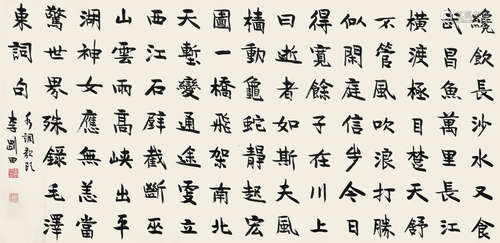 纔飲長沙水又食
武昌魚萬里長江
橫渡極目楚天舒
不管風吹浪打勝
似閒庭信步今日
得寬餘子在川上
曰逝者如斯夫風
檣動龜蛇靜起宏
圖一橋飛架南北
天塹變通途更立
西江石壁截斷巫
山雲雨高峽出平
湖神女應無恙當
驚世界殊錄毛澤
東詞句
水調歌頭
李剛田